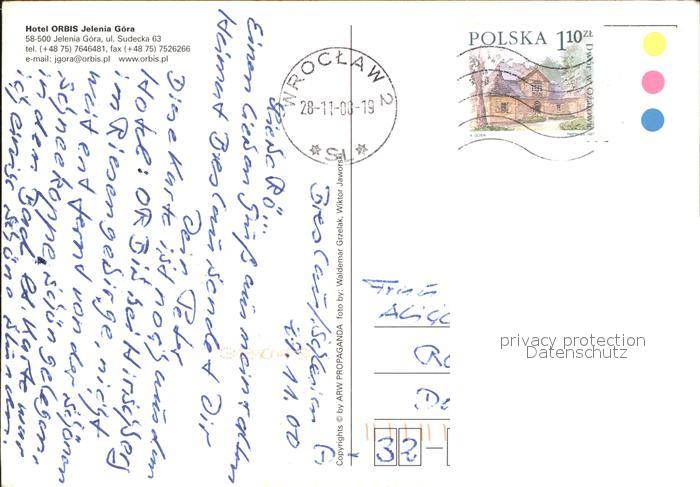 Hotel ORBIS Jelenia Góra
58-500 Jelenia Góra, ul. Sudecka 63
tel. (+48 75) 7646481, fax (+48 75) 7526266
e-mail: jgora@orbis.pl www.orbis.pl
POLSKA 1,10 ZŁ
WROCŁAW 2
28-11-00-19
Breslau/Schlesien
27.11.00
Liebe Rö..
Einen lieben Gruß aus meiner alten
Heimat Breslau sendet Dir
Dein Peter
Diese Karte ist noch aus dem
Hotel: ORBIS bei Hirschberg
im Riesengebirge, nicht
weit entfernt von der schönen
Schneekoppe schön gelegen,
in dem Bad
ich einige schöne Stunden.
Copyrights © by ARW PROPAGANDA foto by: Waldemar Grzelak, Wiktor Jaworski
Frau
32-
privacy protection
Datenschutz